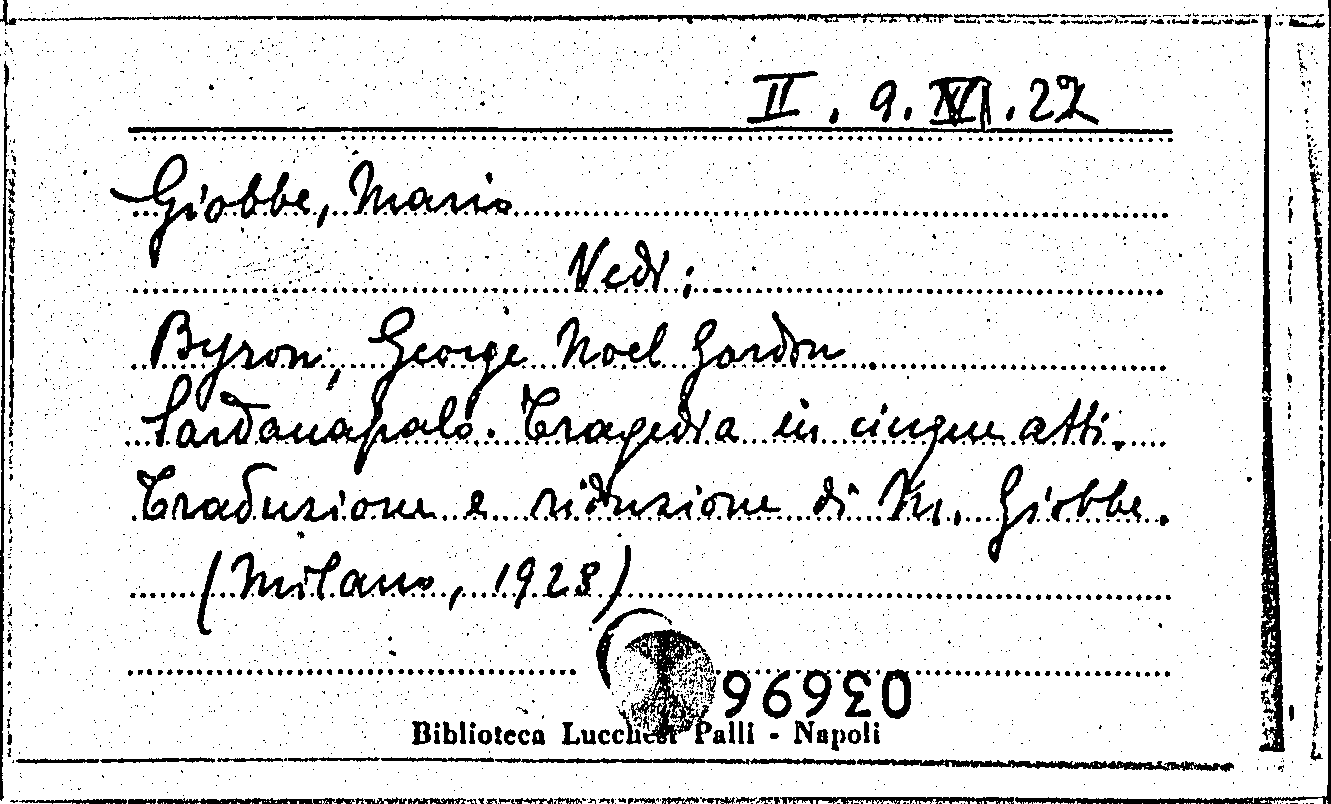 II. 9. .27
Giobbe, Mario
Vedi:
Byron, George Noel Gordon
Sardanapalo. Tragedia in cinque atti.
Traduzione e riduzione di M. Giobbe.
(Milano, 1928)
03696
Biblioteca Lucchesi Palli - Napoli